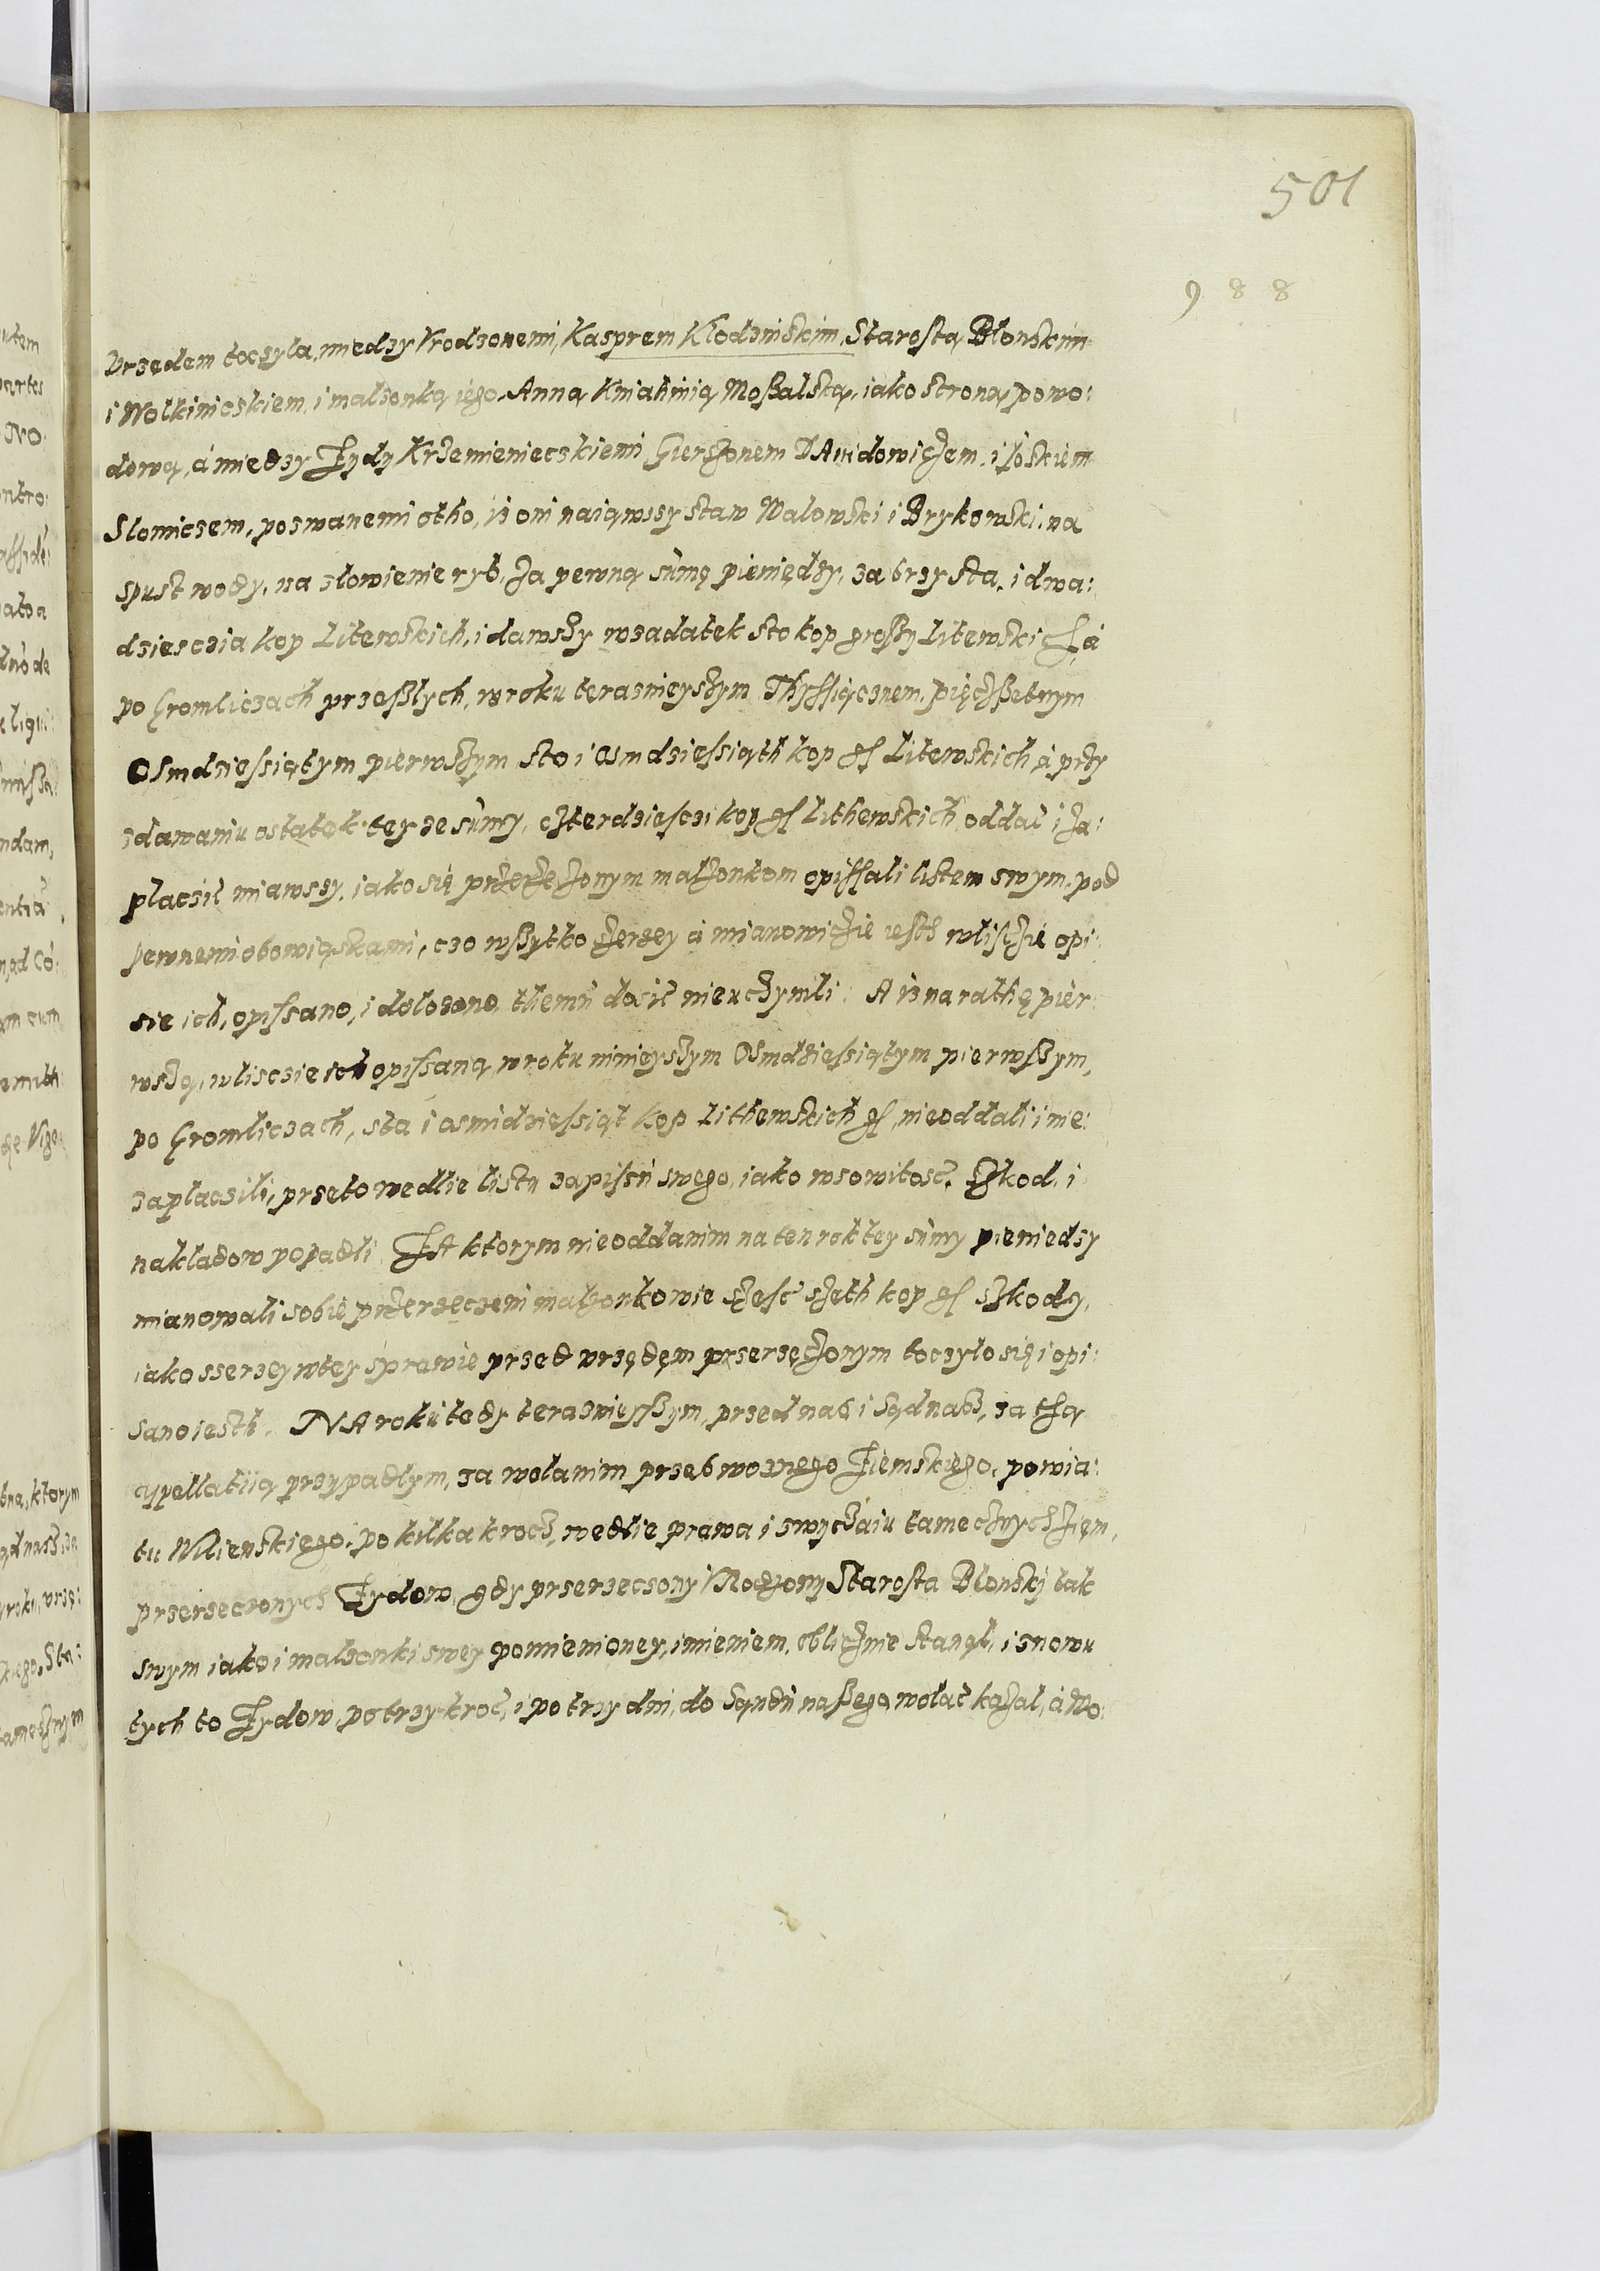 501
988
Vrzędem toczyla, miedzy Vrodzonemi, Kasprem Kłodzinskim, Starostą Błonskim
i Wolkinicskiem, i malzonką iego Anną Kniahinią Moßalską, iako stroną powo:
dową, á miedzy Zydy Krzemienieczkiemi Gierszonem DAwidowiczem, i Joskiem
Slomiczem, pozwanemi otho, iż oni naiąwszy staw Malowski i Brykowski, na
spust wody, na zlowienie ryb, za pewną súmę pieniędzy, za trzy sta, i dwa:
dziesczia kop Litewskich, i dawszy w zadatek sto kop groszy Litewskich, á
po Gromliczach przeszlych, w roku terazniejszym Thyssiącznem, pięczßetnym
Osmdziessiątym pierwszym sto i osmdziessiąth kop gſ Litewskich á przy
zdawaniu ostatek tey ze súmy, czterdziesczi kop gſ Lithewskich, oddać i za:
placzić miawszy, iako się przerzeczonym malzonkom opissali listem swym, pod
pewnemi obowiąskami, czo wßytko szerzey á mianowiczie iesth w liscie opi:
sie ich, opissano, i dolozono, themú dosić nie uczynili: A iz na rathę pier:
wszą, w lisczie ich opissaną, w roku ninieyszym Osmdziessiątym pierwßym,
po Gromliczach, sta i osmidziessiąt kop Lithewskich gſ, nie oddali i nie:
zaplaczili, przeto wedlie listu zapissú swego, iako w sowitosć, szkod, i
nakladow popadli. ZA ktorym nieoddanim na ten rok tey súmy pieniedzy
mianowali sobie przerzeczeni malzonkowie szesć szeth kop gſ szkody,
iako sserzey w tey sprawie przed vrzędem przerzeczonym toczylo się i opi:
sano iesth. NA roku tedy teraznieyßym, przed nas i sąd nasz, za thą
appellatiią przypadlym, za wolanim przez woznego Ziemskiego, powia:
tu Wilienskiego, po kilkakrocz, wedlie prawa i zwyczáiu tamecznych ziem,
przerzeczonych Zydow, gdy przerzeczony VRodzony Starosta Blonskj tak
swym iako i malzonki swey pomienioney, imieniem, obliczmie stanąl, i znowu
tych to Zydow, potrzykroć, i po trzy dni, do Sąndú naßego, wolać kazal, á Wo: